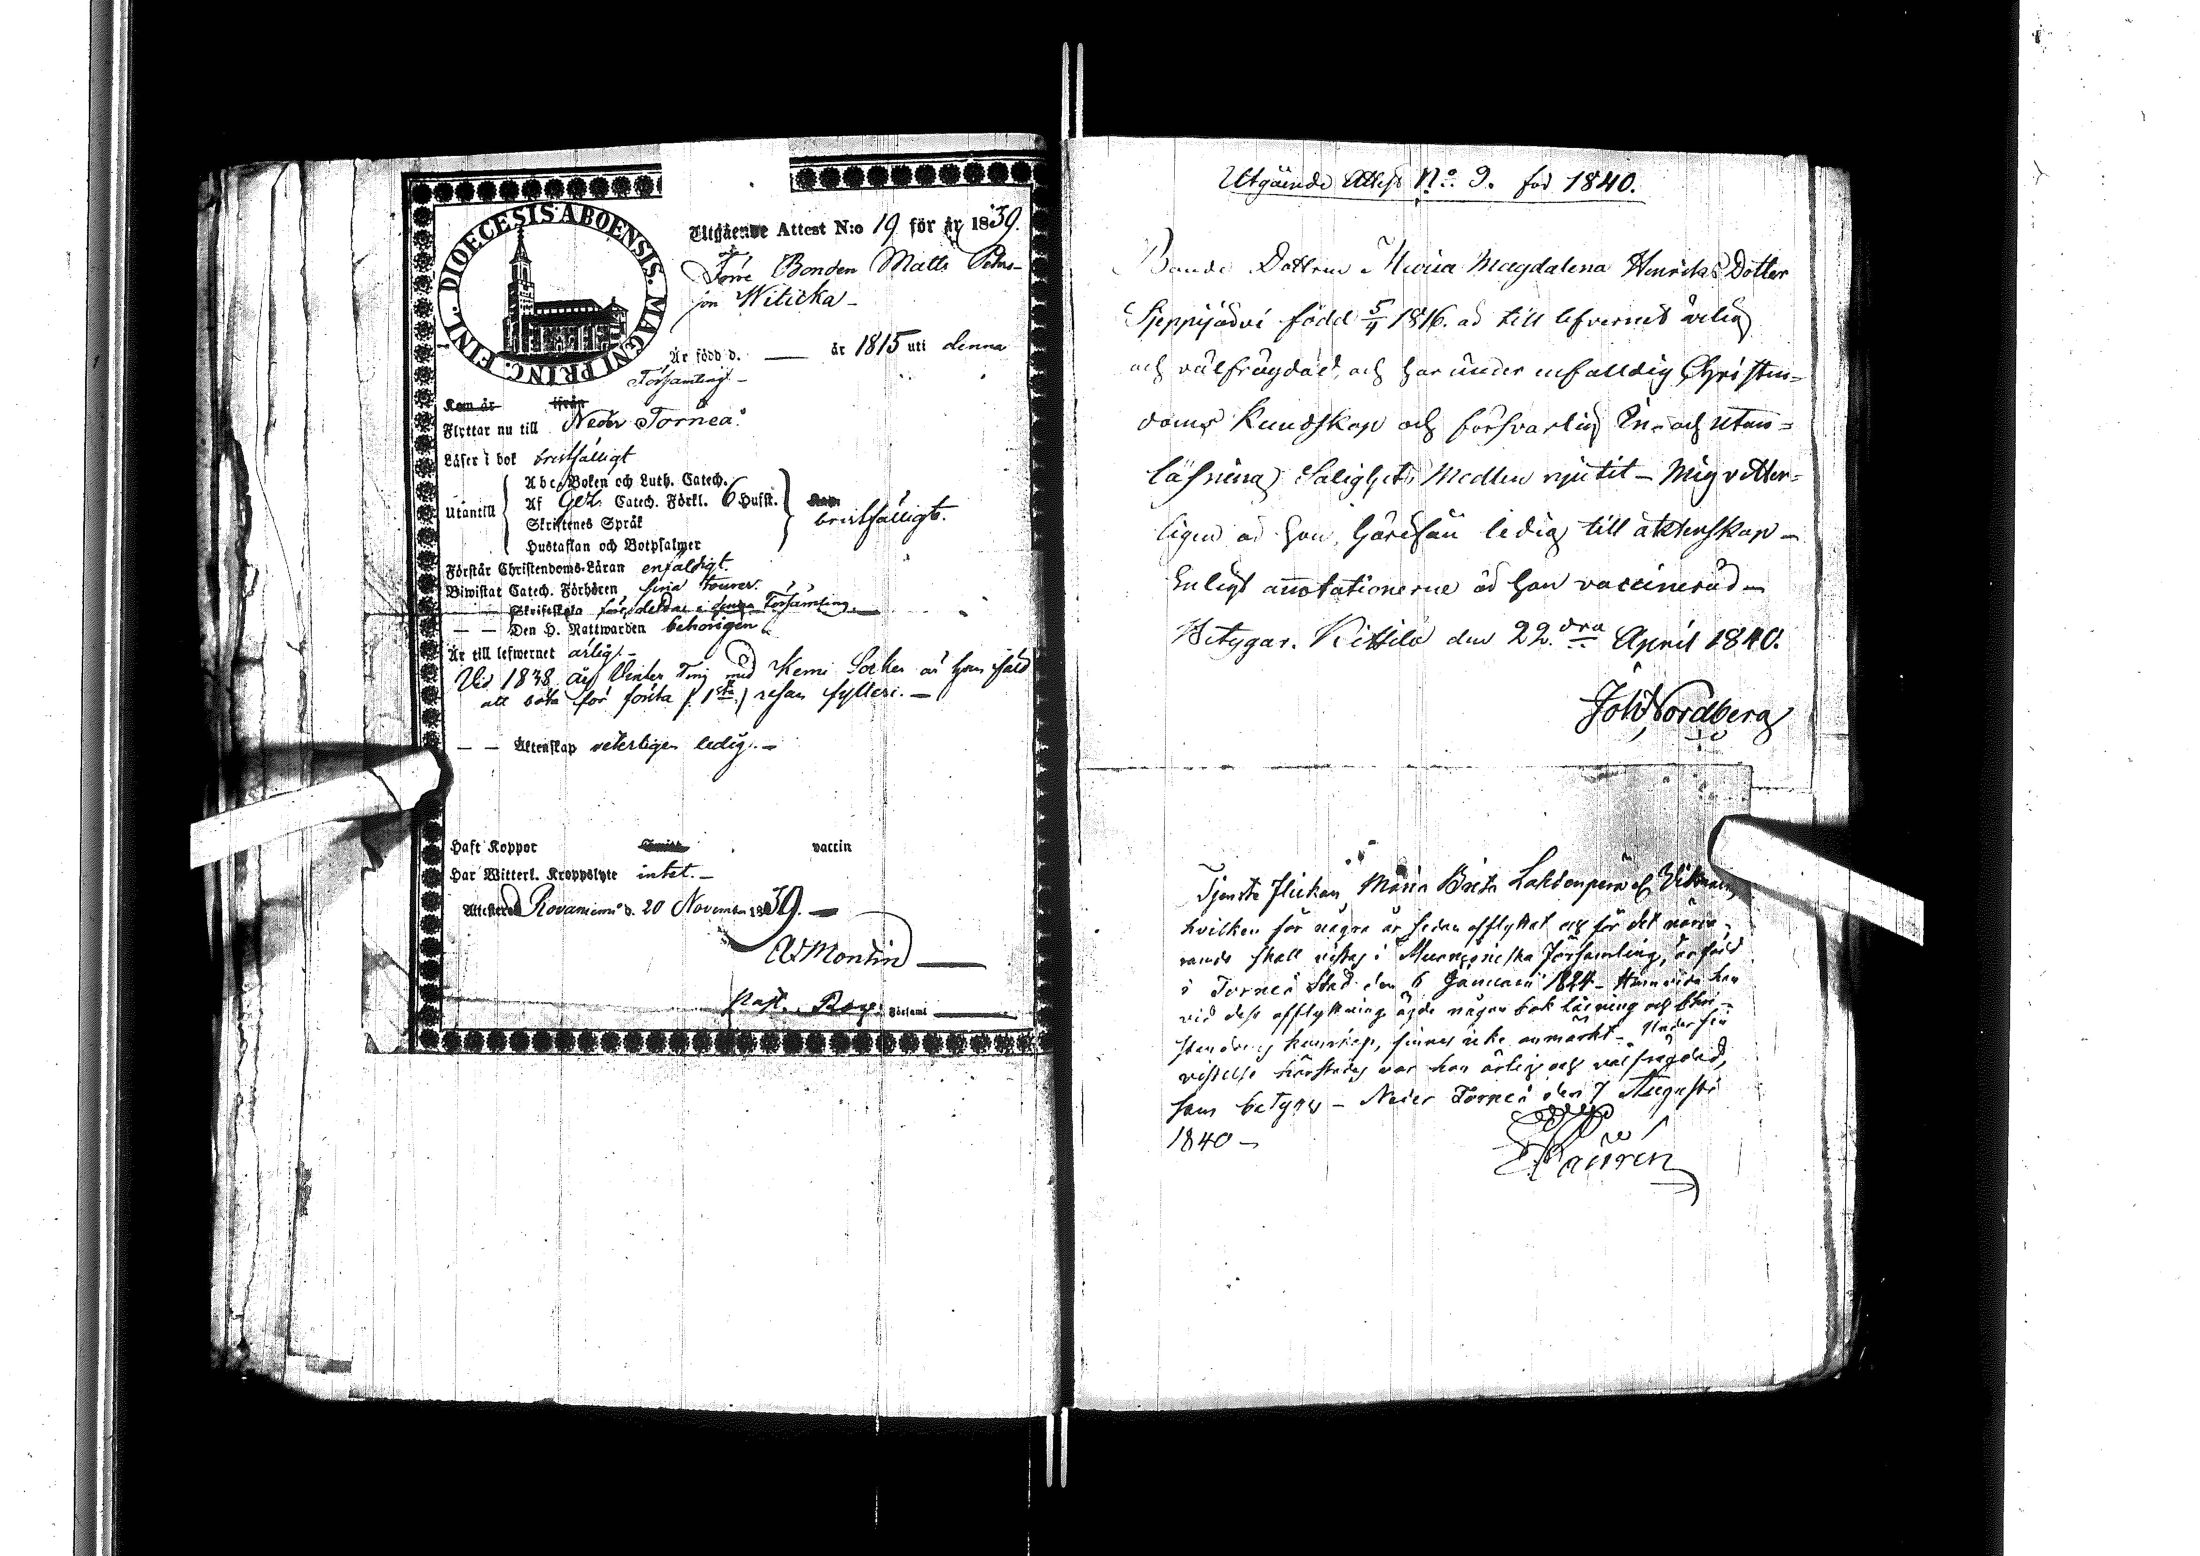 DIOECESIS ABOENSIS. MAGNI PRINC. FINL.
Utgående Attest N:o 19 för år 1839.
Förre Bonden Matts Peters-
son Witicka -
Är född d. — år 1815 uti denna
Församling -
Kom år ifrån
Flyttar nu till Neder Torneå.
Läser i bok bristfälligt
Utantill
Abc-Boken och Luth. Catech.
Af Gez. Catech. Förkl. 6 Hufst.
Skriftenes Språk
Hustaflan och Botpsalmer
bristfälligt.
Förstår Christendoms-Läran enfaldigt.
Biwistat Catech. Förhören sina tourer.
— — Skriftskola föregående i denna Församling. —
— — Den H. Nattwarden behörigen
Är till lefwernet ärlig. -
Vid 1838 års Vinter Ting med Kemi Socken är han fäld
att böta för första /: 1sta :/ resan fylleri. —
— — Äktenskap veterligen ledig. -
Haft Koppor vaccin
Har Witterl. Kroppslyte intet. -
Attesterad Rovaniemi d. 20 November 1839. —
Montin —
Past. Rov. Församl —
Utgående Attest No. 9. för 1840.
Bonde Dottren Maria Magdalena Henriks Dotter
Sjeppijärvi född 5/4 1816. är till lefvernet ärlig
och välfrägdad, och har under enfaldig Christen=
doms Kundskap och försvarlig In- och Utan=
läsning Salighets Medlen njutit - Mig vetter=
ligen är hon härifrån ledig till äktenskap -
Enligt annotationerne är hon vaccinerad -
Betygar. Kittilä den 22:dra April 1840.
Joh Nordberg
Tjenste Flickan Maria Brita
hvilken för några år sedan afflyttat och för det närva-
rande skall vistas i Muonioniska Församling, är född
i Torneå Stad den 6 Januarii 1824 - Huruvida hon
vid dess afflyttning ägde någon bok läsning och Chri-
stendoms kunskap, finnes icke anmärkt - Under sin
vistelse härstädes var hon ärlig och välfrägdad,
som betygas - Neder Torneå den 7 Augusti
1840 -